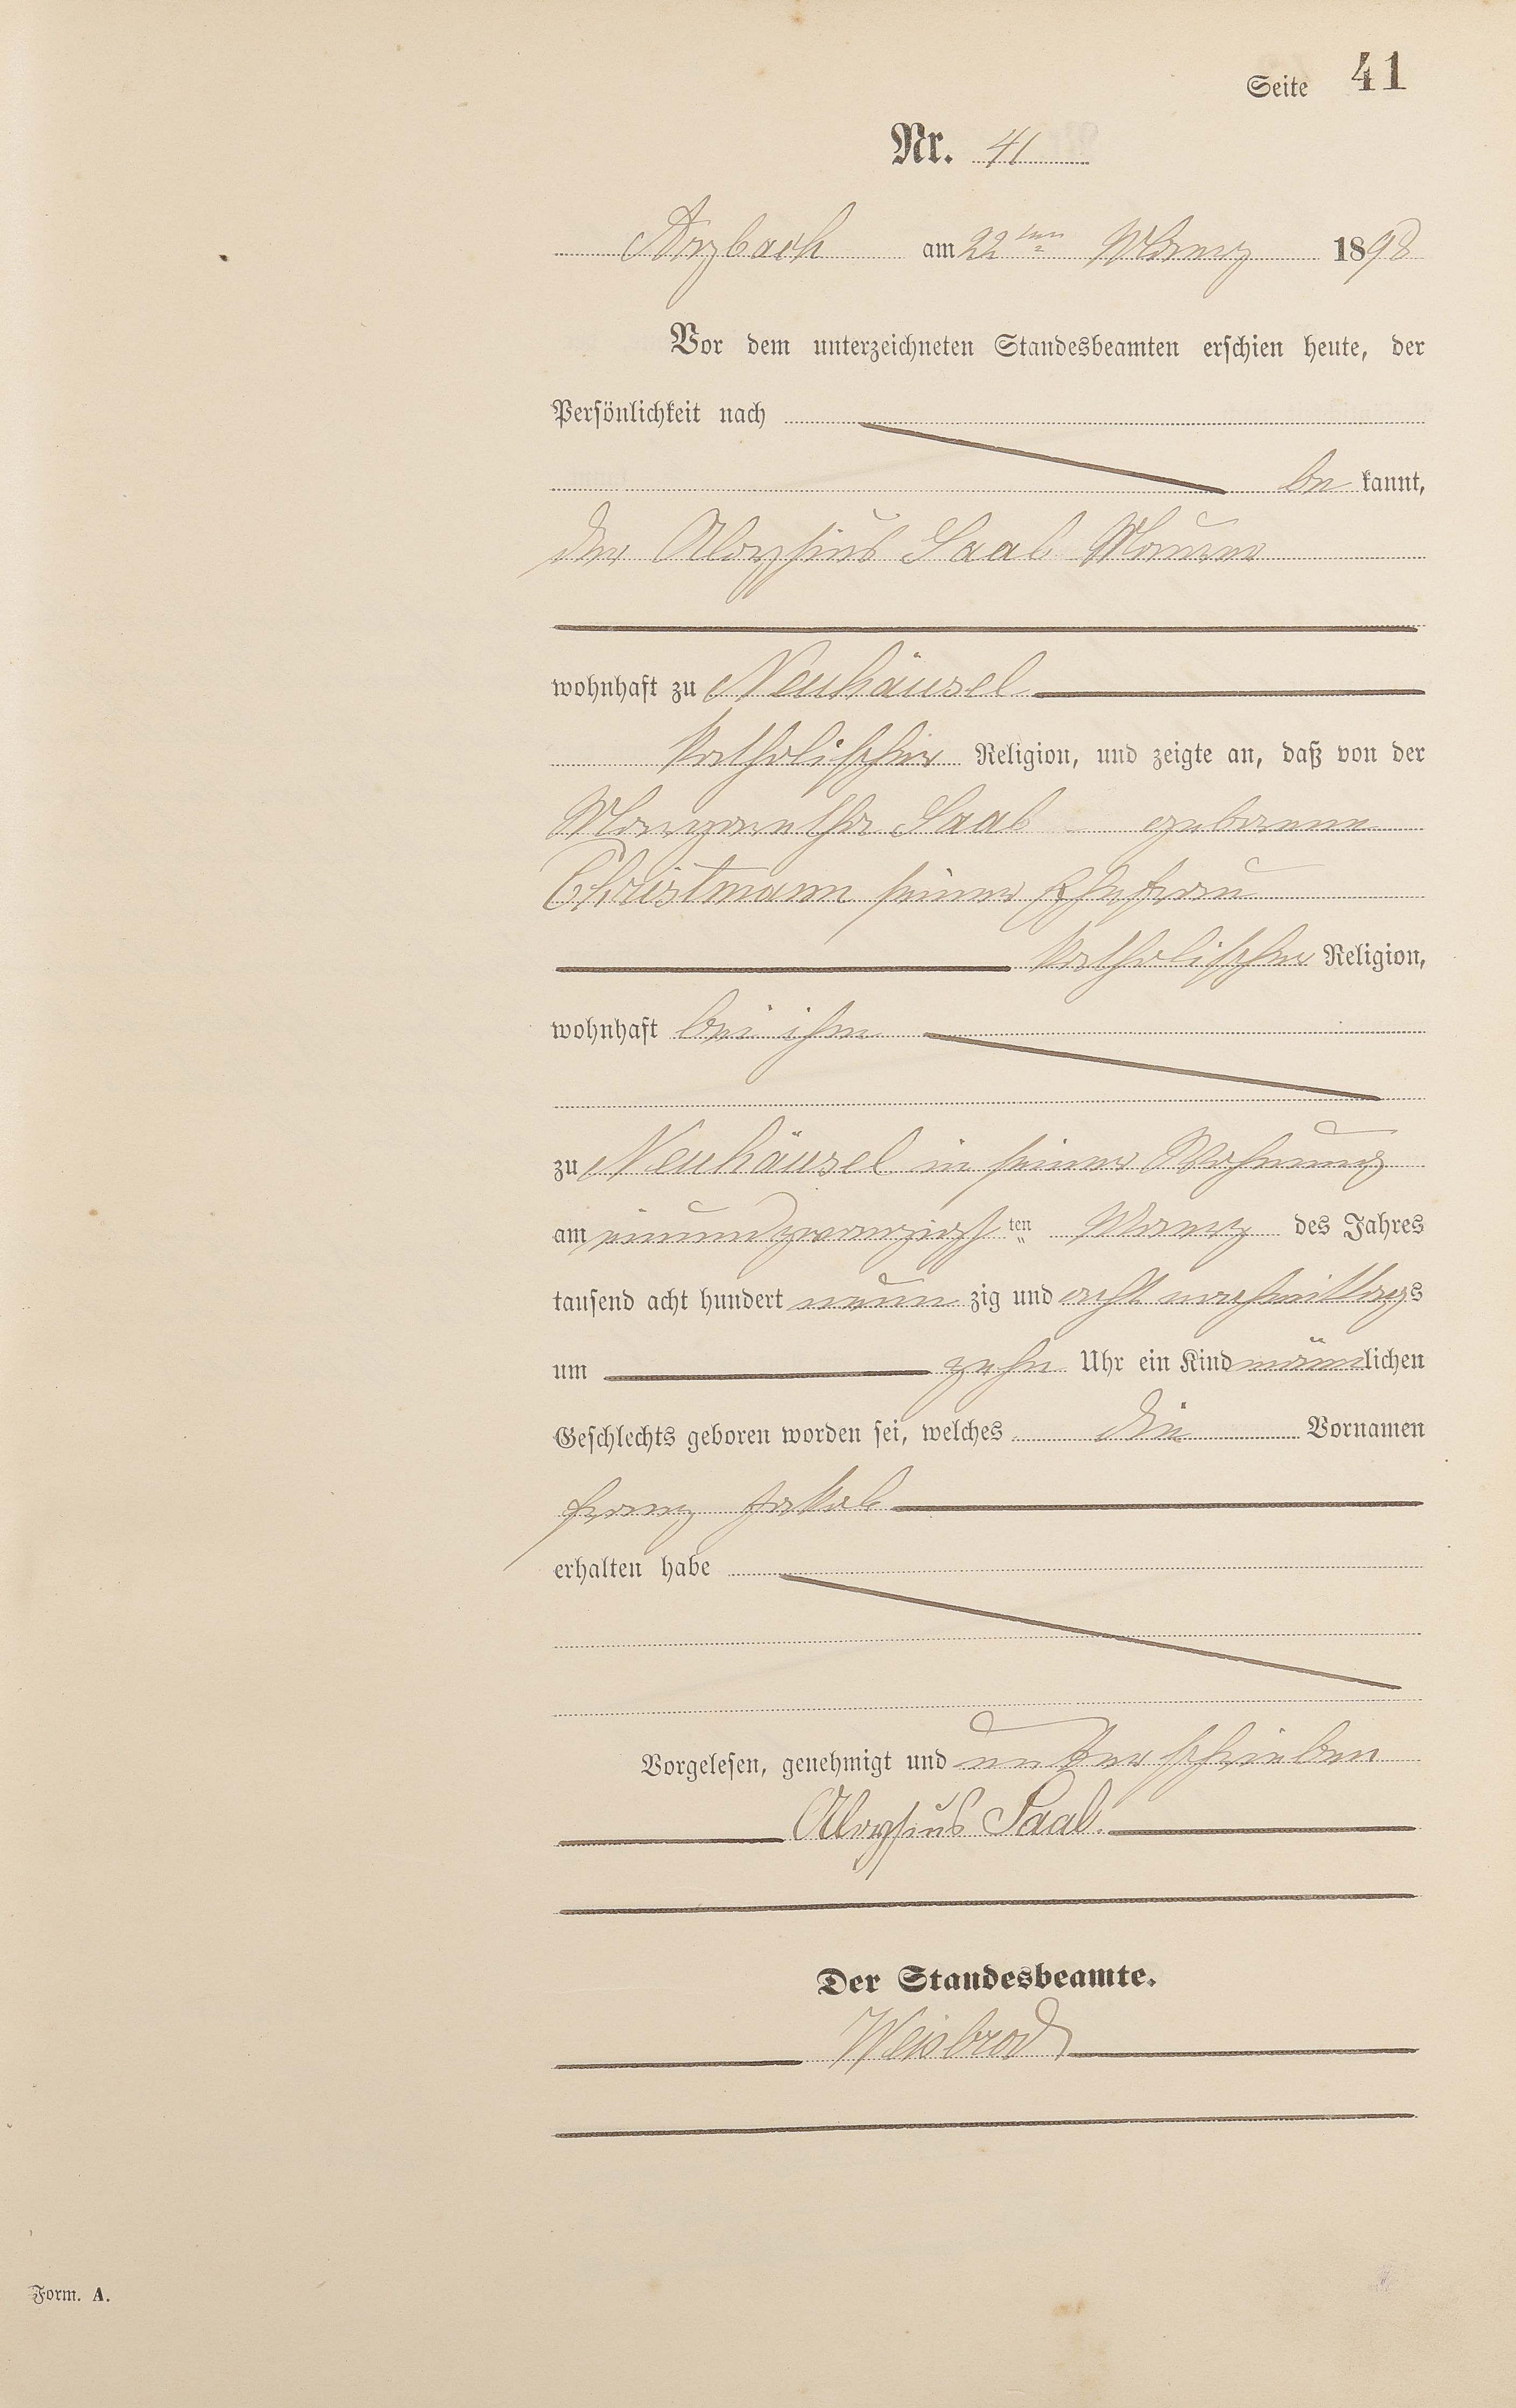 Seite 41
Nr. 41
Arzbach am 22ten Maerz 1898
Vor dem unterzeichneten Standesbeamten erschien heute, der
Persönlichkeit nach
be kannt,
der Aloysius Saal Maurer
wohnhaft zu Neuhäusel
katholischer Religion, und zeigte an, daß von der
Margaretha Saal geborene
Christmann seiner Ehefrau
katholischer Religion,
wohnhaft bei ihm
zu Neuhäusel in seiner Wohnung
am einundzwanzigsten Maerz des Jahres
tausend acht hundert neun zig und acht nachmittags
um zehn Uhr ein Kind männlichen
Geschlechts geboren worden sei, welches die Vornamen
Franz Jakob
erhalten habe
Vorgelesen, genehmigt und unterschrieben
Aloysius Saal.
Der Standesbeamte.
Weisbrod
Form. A.